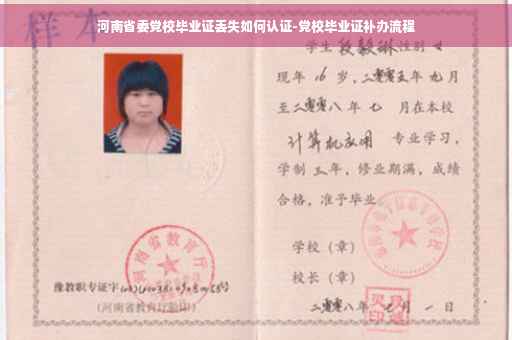 河南省委党校毕业证丢失如何认证-党校毕业证补办流程
样本
学生段毅琳性别女
现年 16 岁,二零零五年九月
至二零零八年七 月在本校
计算机应用 专业学习,
学制三年,修业期满,成绩
合格,准予毕业
学校(章)
校长(章)
二零零八年 月一日
河南省教育厅
豫教职专证字
(河南省教育厅验印)